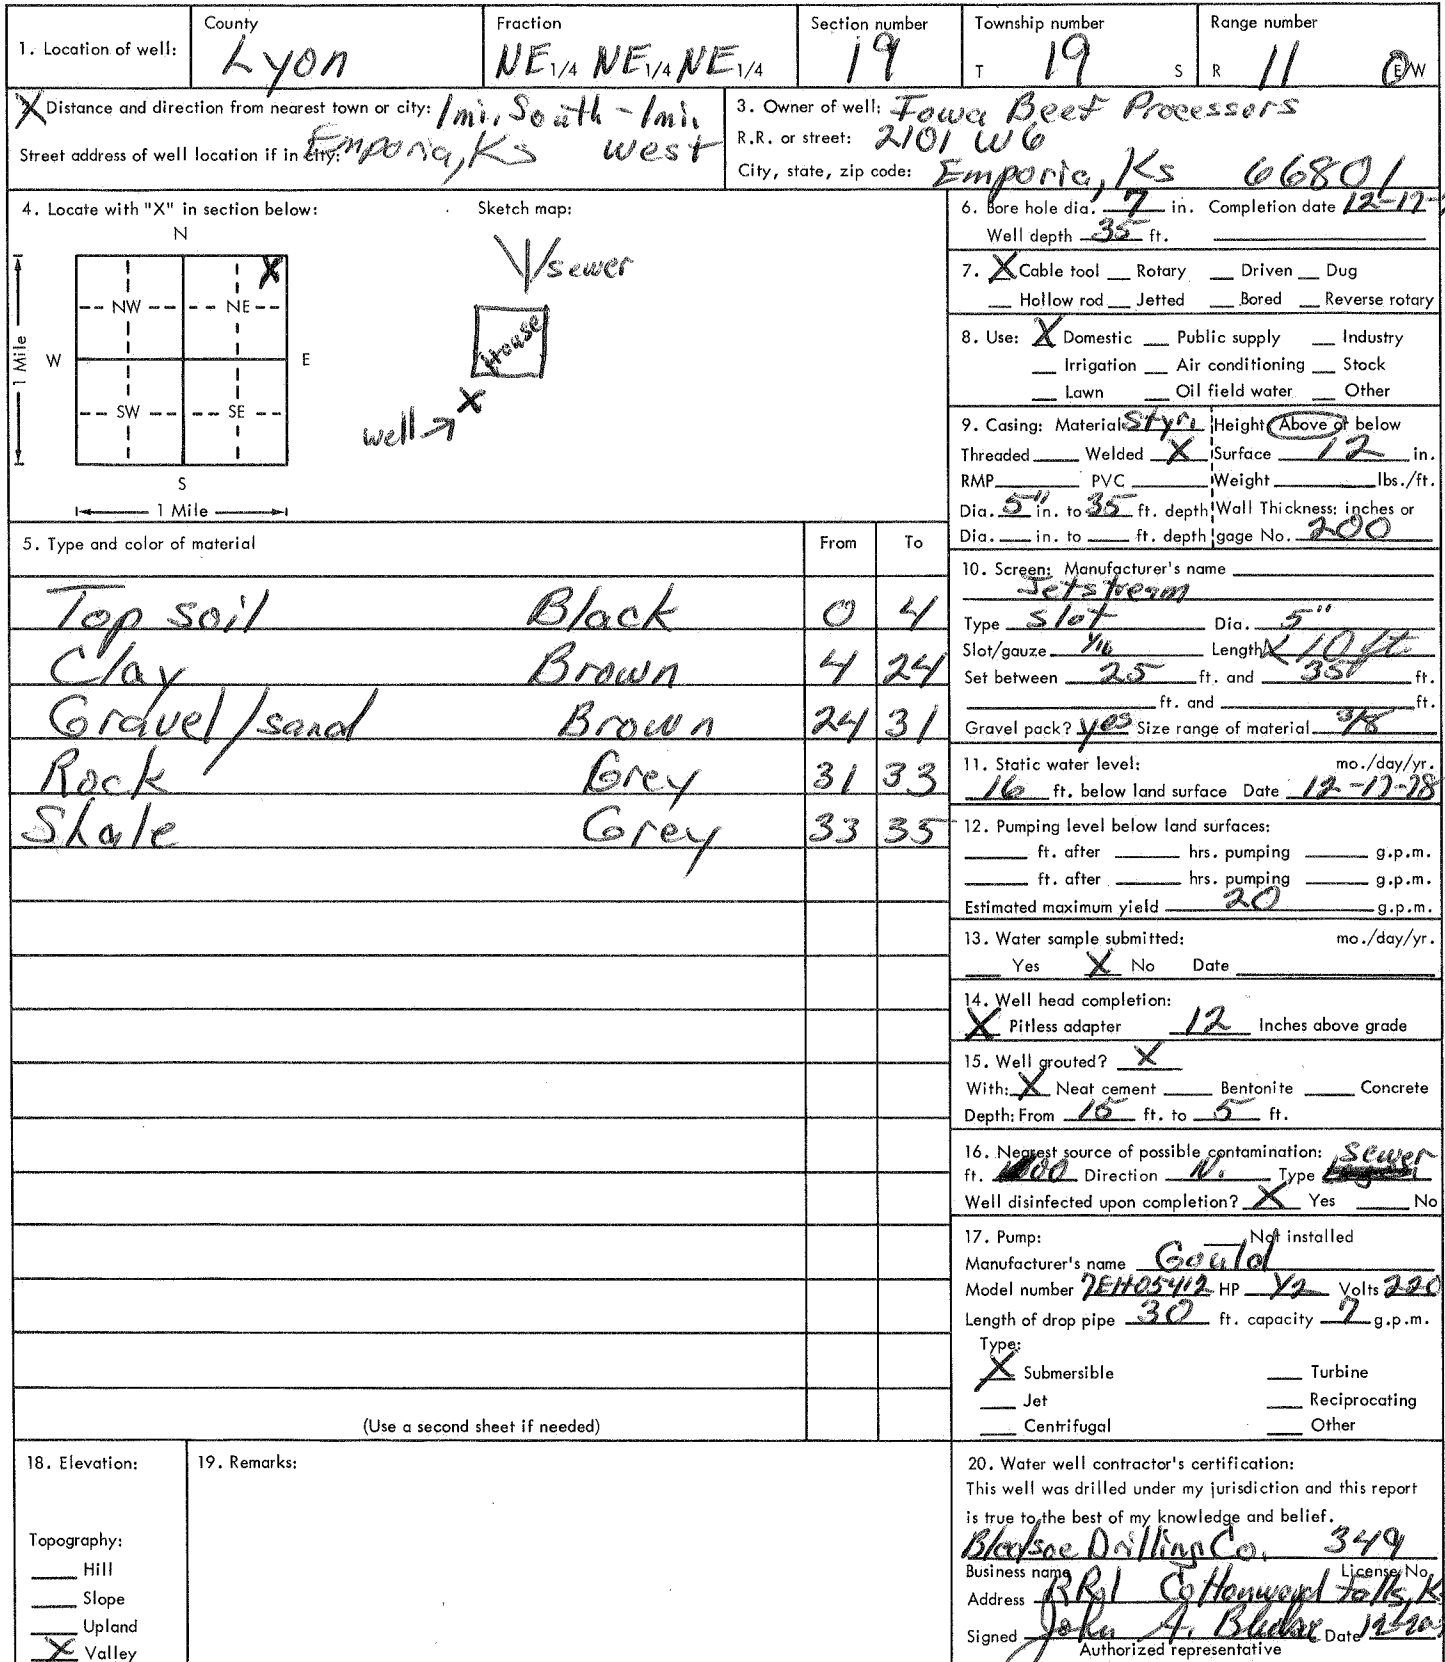 1. Location of well: County Lyon Fraction NE 1/4 NE 1/4 NE 1/4 Section number 19 Township number T 19 S Range number R 11 E/W
X Distance and direction from nearest town or city: 1 mi. South - 1 mi. west
Street address of well location if in city: Emporia, Ks
3. Owner of well: Iowa Beef Processors
R.R. or street: 2101 W 6
City, state, zip code: Emporia, Ks 66801
4. Locate with "X" in section below: Sketch map:
N
NW NE X
W E
SW SE
S
1 Mile
1 Mile
sewer
House
X
well
5. Type and color of material From To
Top soil Black 0 4
Clay Brown 4 24
Gravel/sand Brown 24 31
Rock Grey 31 33
Shale Grey 33 35
(Use a second sheet if needed)
6. Bore hole dia. 7 in. Completion date 12-17-
Well depth 35 ft.
7. X Cable tool Rotary Driven Dug
Hollow rod Jetted Bored Reverse rotary
8. Use: X Domestic Public supply Industry
Irrigation Air conditioning Stock
Lawn Oil field water Other
9. Casing: Material Styr. Height Above or below
Threaded Welded X Surface 12 in.
RMP PVC Weight lbs./ft.
Dia. 5" in. to 35 ft. depth Wall Thickness: inches or
Dia. in. to ft. depth gage No. 200
10. Screen: Manufacturer's name
Jetstream
Type Slot Dia. 5"
Slot/gauze 1/16 Length 10 ft.
Set between 25 ft. and 35 ft.
ft. and ft.
Gravel pack? yes Size range of material 3/8
11. Static water level: mo./day/yr.
16 ft. below land surface Date 12-17-78
12. Pumping level below land surfaces:
ft. after hrs. pumping g.p.m.
ft. after hrs. pumping g.p.m.
Estimated maximum yield 20 g.p.m.
13. Water sample submitted: mo./day/yr.
Yes X No Date
14. Well head completion:
X Pitless adapter 12 Inches above grade
15. Well grouted? X
With: X Neat cement Bentonite Concrete
Depth: From 15 ft. to 5 ft.
16. Nearest source of possible contamination: Sewer
ft. Direction N. Type
Well disinfected upon completion? X Yes No
17. Pump: Not installed
Manufacturer's name Gould
Model number 7EH05412 HP 1/2 Volts 220
Length of drop pipe 30 ft. capacity 7 g.p.m.
Type:
X Submersible Turbine
Jet Reciprocating
Centrifugal Other
18. Elevation:
Topography:
Hill
Slope
Upland
X Valley
19. Remarks:
20. Water well contractor's certification:
This well was drilled under my jurisdiction and this report
is true to the best of my knowledge and belief.
Bledsoe Drilling Co. 349
Business name License No.
Address RR 1 Cottonwood Falls, K
Signed John A. Bledsoe Date 12-20-
Authorized representative